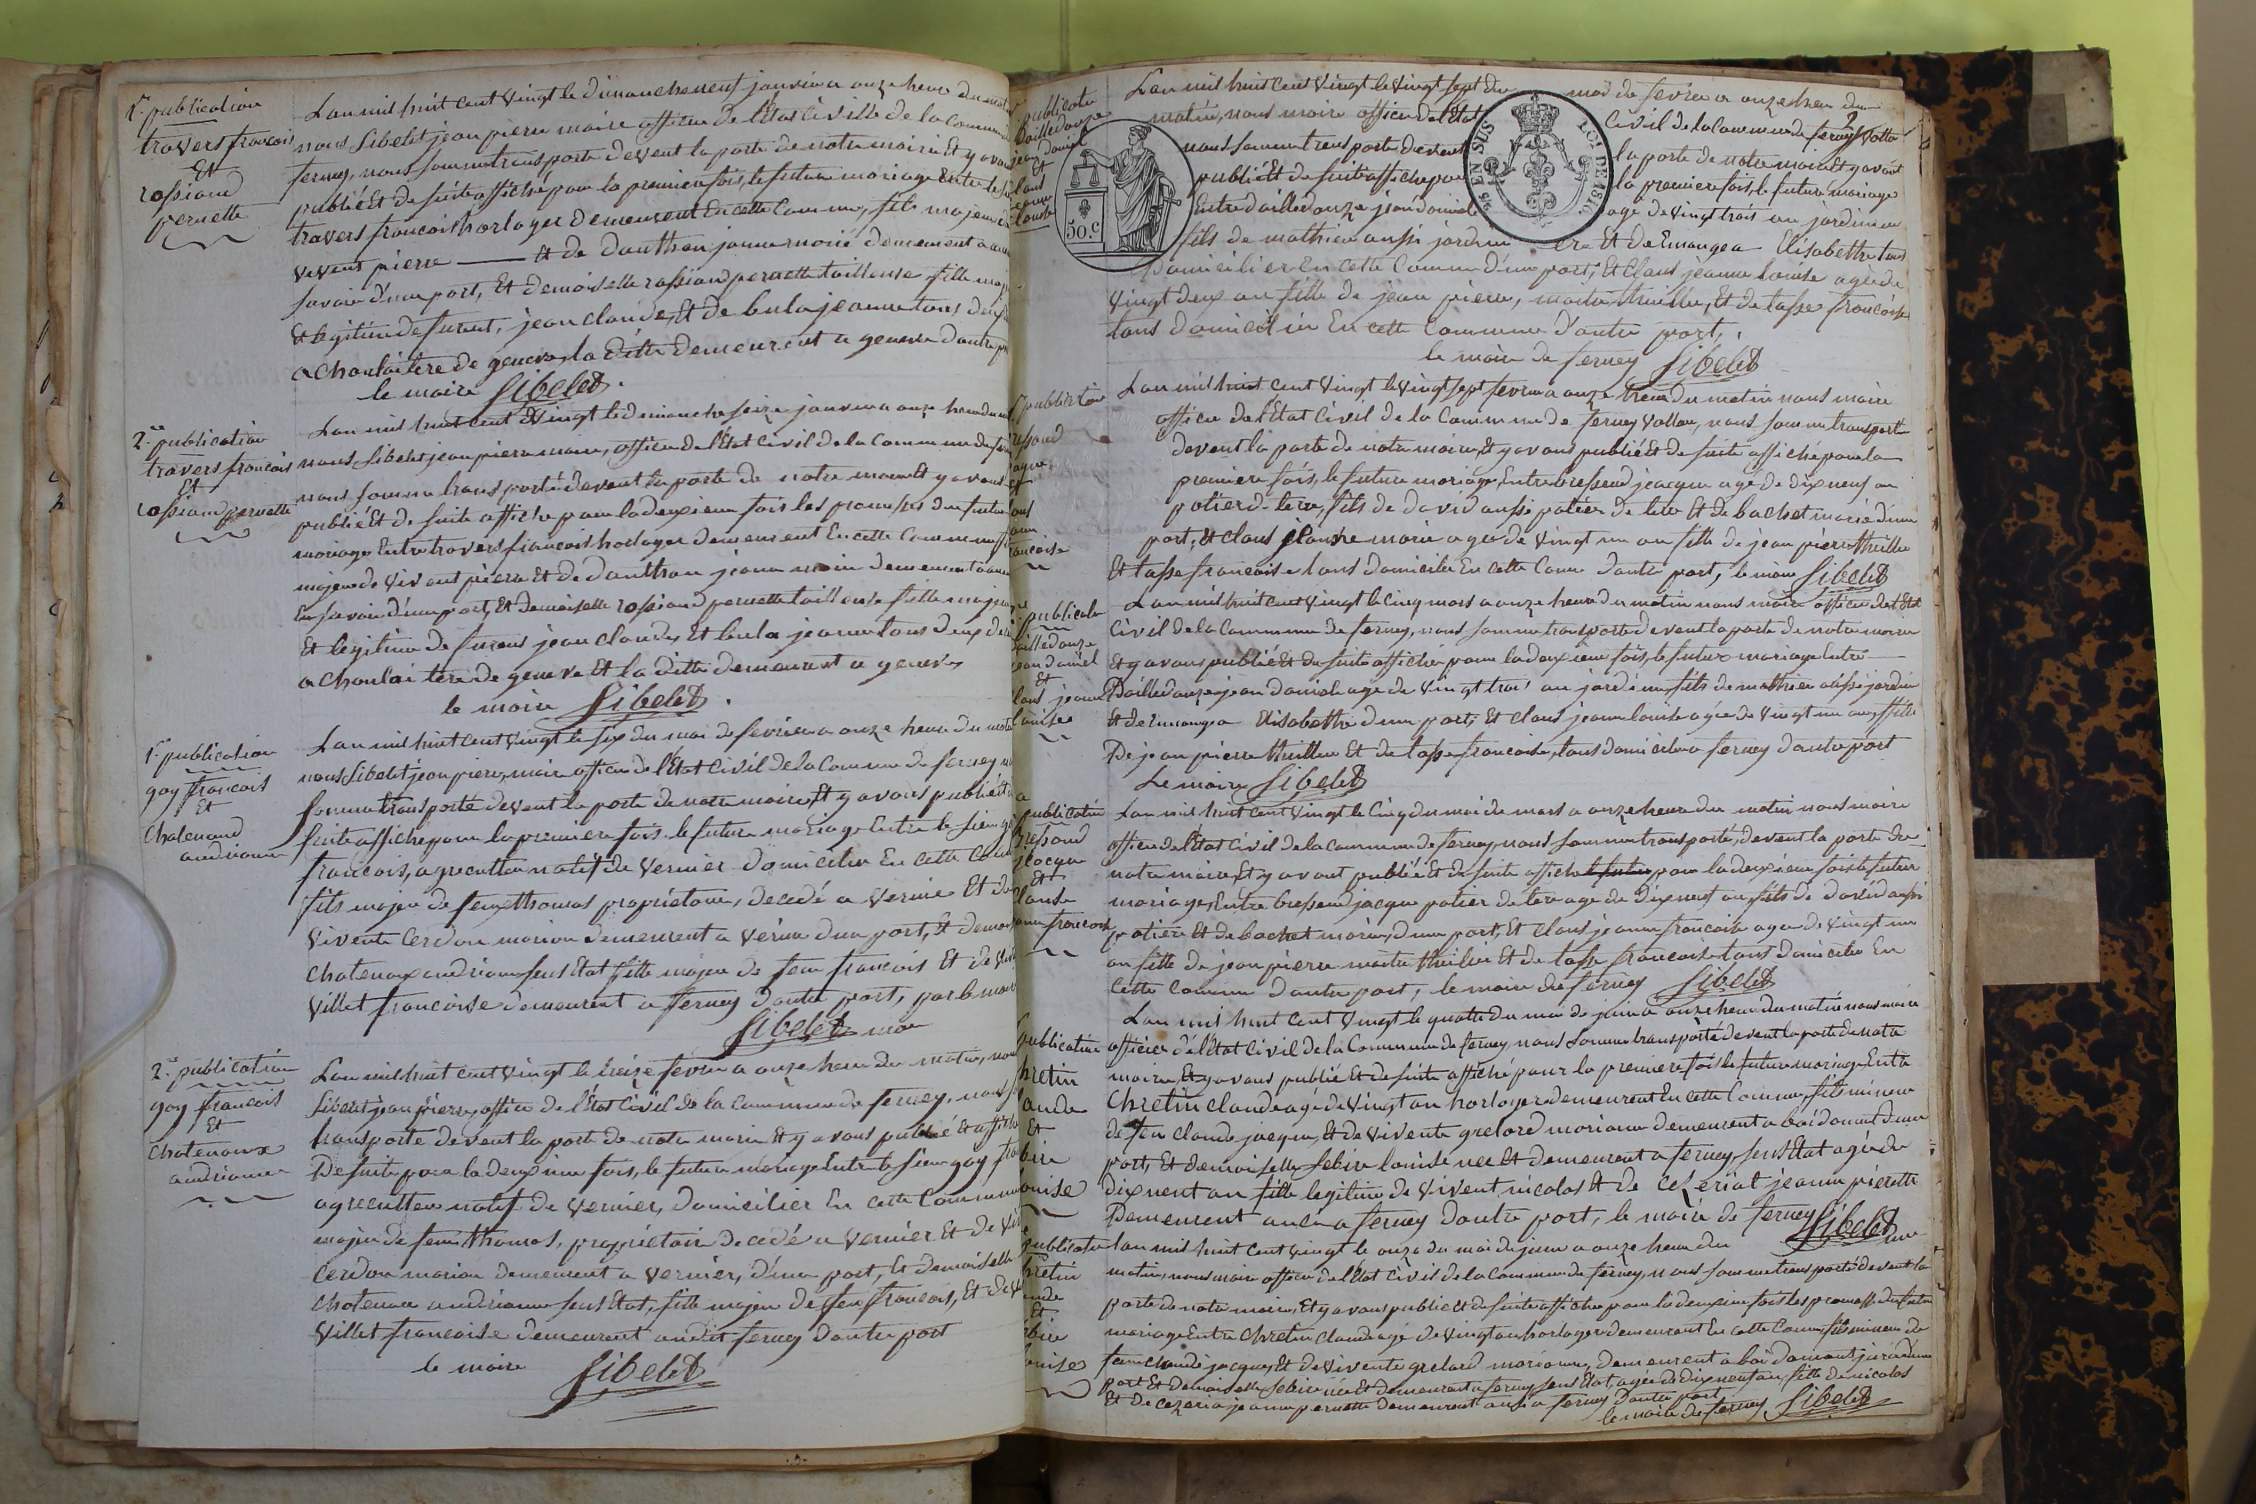 1re publication
travers francois
Et
rossiand
pernette
Lan mil huit cent vingt le dimanche neuf janvier a onze heure du
nous Sibelet jean pierre maire officier de l'Etat Civille de la Commune
ferney, nous somme transporté devent la porte de notre mairie Et y avons
publié Et de suite affiché pour la premiere fois, le future mariage Entre le
travers francois horloger demeurent En cette Commune, fils majeur
vivent pierre Et de dauthon jeanne marie demeurent a
savoie d'une part, Et demoiselle rossiand pernette tailleuse fille
Et legitime de furent, jean claude, Et de bula jeanne tous deux
a Choulai tere de geneve, la ditte demeurent a geneve d'autre
le maire Sibelet.
2e publication
travers francois
Et
rossiand pernette
Lan mil huit cent vingt le dimanche seize janvier a onze heure du
nous Sibelet jean pierre maire, officier de l'Etat Civil de la Commune de
nous somme transporté devent la porte de notre mairie Et y avons
publié Et de suite affiché pour la deuxieme fois les promesses du future
mariage Entre travers francois horloger demeurent En cette Commune
majeur de vivent pierre Et de dauthon jeanne marie demeurent a
En savoie d'une part, Et demoiselle rossiand pernette tailleuse fille majeure
Et legitime de furent jean claude, Et bula jeanne tous deux
a Choulai tere de geneve Et la ditte demeurent a geneve
le maire Sibelet.
1re publication
gay francois
Et
Chatenoud
andrianne
Lan mil huit cent vingt le six du moi de fevrier a onze heure du
nous Sibelet jean pierre, maire officier de l'Etat Civil de la Commune de ferney
somme transporté devent la porte de notre mairie, Et y avons publié Et
suite affiche pour la premiere fois le future mariage Entre le sieur
francois, agreculteur natif de Vernier domicilier En cette
fils majeur de feu thomas proprietaire, decedé a vernier Et de
vivente Cerdon marion demeurent a vernier d'une part, Et
chatenoux andrianne sens Etat fille majeure de feu francois Et de
Villet francoise demeurent a ferney d'autre part, par le
Sibelet maire
2e publication
gay francois
Et
Chatenoux
andrianne
Lan mil huit cent vingt le treize fevrier a onze heure du matin, nous
Sibelet jean pierre, officier de l'Etat Civil de la Commune de ferney, nous
transporté devent la porte de notre mairie Et y avons publié Et affiché
De suite pour la deuxieme fois, le future mariage Entre le sieur gay
agreculteur natif de vernier, domicilier En cette Commune
majeur de feu thomas, proprietaire decedé a vernier Et de
Cerdon marion demeurent a vernier, d'une part, Et demoiselle
Chatenoux andrianne sens Etat, fille majeur de feu francois, Et de
Villet francoise demeurent audit ferney d'autre part
le maire Sibelet
2
98 EN SUS
LOI DE 1816.
50.c
publication
Bailledouze
jean daniel
Et
Clans
jeanne
Louise
Lan mil huit cent vingt le vingt sept du moi de fevrier a onze heure du
matin, nous maire officier de l'Etat Civil de la Commune de ferney Voltaire
nous somme transporté devent la porte de notre mairie Et y avons
publié Et de suite affiche pour la premiere fois, le future mariage
Entre bailledouze jean daniel agé de vingt trois an jardinier
fils de mathieu aussi jardinier Et de Emangea Elisabethe tous
Domicilier En cette Commune d'une part, Et Clans jeanne louise agée de
vingt deux an fille de jean pierre, maitre thuillier, Et de tasse francoise
tous domicilier En cette Commune d'autre part,
le maire de ferney Sibelet
publication
Et
francoise
Lan mil huit cent vingt le vingt sept fevrier a onze heure du matin nous maire
officier de l'Etat Civil de la Commune de ferney voltaire, nous somme transporté
devent la porte de notre mairie Et y avons publié Et de suite affiché pour la
premiere fois, le future mariage, Entre bressend jacque agé de dix neuf an
potier de tere, fils de david aussi potier de tere Et de bachet marie d'une
part, Et clans jeanne marie agée de vingt un an fille de jean pierre thuillier
Et tasse francoise tous domicilier En cette Comune d'autre part, le maire Sibelet
publication
Bailledouze
jean daniel
Et
Clans jeanne
Louise
Lan mil huit cent vingt le cinq mars a onze heure du matin nous maire officier de l'Etat
Civil de la Commune de ferney, nous somme transporté devent la porte de notre mairie
Et y avons publié Et de suite affiché pour la deuxieme fois, le future mariage Entre
Bailledouze jean daniel agé de vingt trois an jardinier, fils de mathieu aussi jardinier
Et de Emangea Elisabethe d'une part, Et clans jeanne louise agée de vingt un an, fille
De jean pierre thuillier Et de tasse francoise, tous domicilier a ferney d'autre part
Le maire Sibelet
publication
bressend
jacque
Et
Clanse
jeanne francoise
Lan mil huit cent vingt le Cinq du moi de mars a onze heure du matin nous maire
officier de l'Etat Civil de la Commune de ferney, nous somme transporté, devent la porte de
notre mairie, Et y avons publié Et de suite affiché le future pour la deuxieme fois le future
mariage, Entre bressend jacque potier de tere agé de dix neuf an, fils de david aussi
potier Et de bachet marie, d'une part, Et clans jeanne francoise agée de vingt un
an fille de jean pierre maitre thuilier Et de tasse francoise tous domicilier En
Cette Commune d'autre part, le maire de ferney Sibelet
publication
Chretin
Claude
Et
Sebire
Louise
Lan mil huit cent vingt le quatre du moi de juin a onze heure du matin nous maire
officier de l'Etat Civil de la Commune de ferney, nous somme transporté devent la porte de notre
mairie, Et y avons publié Et de suite affiché pour la premiere fois le future mariage Entre
Chretin claude agé de vingt an horloger demeurent En cette Commune, fils mineur
de feu claude jacque, Et de vivente grelard marianne demeurent a bois damont d'une
part, Et demoiselle Sebire louise née Et demeurent a ferney, sens Etat agée de
dix neuf an fille legitime de vivent nicolas Et de Cezeriat jeanne pierette
Demeurent aussi a ferney d'autre part, le maire de ferney Sibelet
publication
Chretin
Claude
Et
Sebire
Louise
Lan mil huit cent vingt le onze du moi de juin a onze heure du
matin, nous maire officier de l'Etat Civil de la Commune de ferney, nous somme transporté devent la
porte de notre mairie, Et y avons publié Et de suite affiche pour la deuxieme fois les promesse du future
mariage Entre Chretin claude agé de vingt an horloger demeurent En cette Comune fils mineur de
feu claude jacque, Et de vivente grelard marianne, demeurent a bois damont jura d'une
part Et demoiselle Sebire née Et demeurent a ferney sens Etat, agée de dix neuf an, fille de nicolas
Et de cezeria jeanne pernette demeurent aussi a ferney d'autre part
le maire de ferney Sibelet